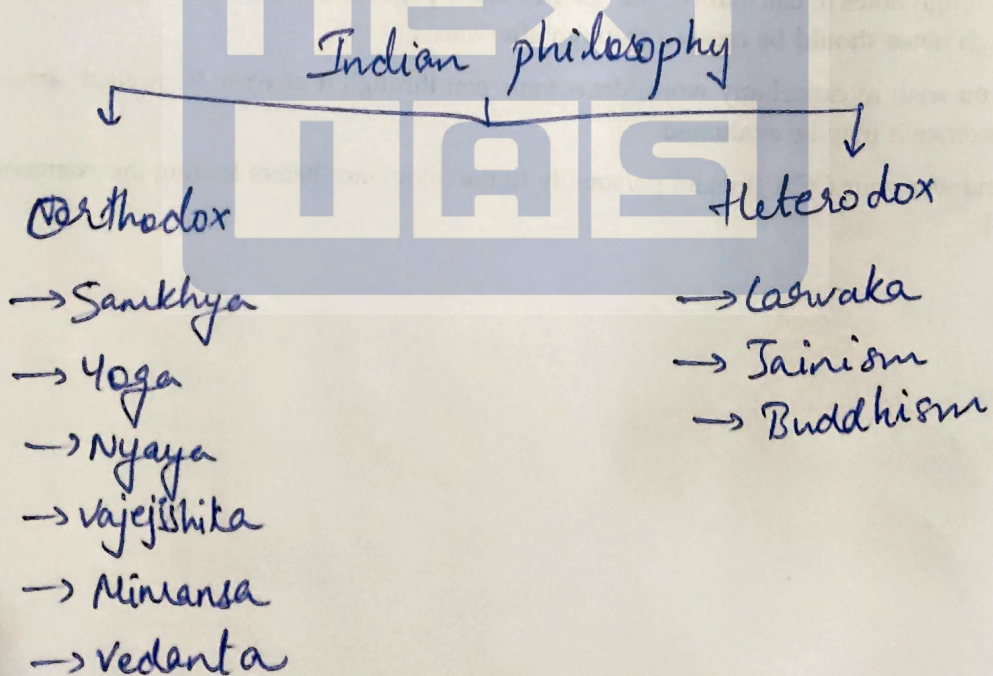 Indian philosophy
Orthodox
→ Samkhya
→ Yoga
→ Nyaya
→ Vajejishika
→ Mimansa
→ Vedanta
Heterodox
→ Carvaka
→ Jainism
→ Buddhism
IAS